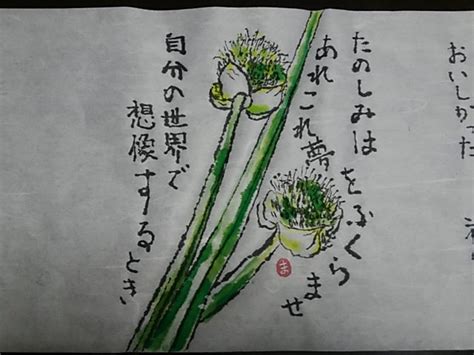 おいしかった
たのしみは
あれこれ夢
をふくら
ませ
自分の世界で
想像するとき
ま